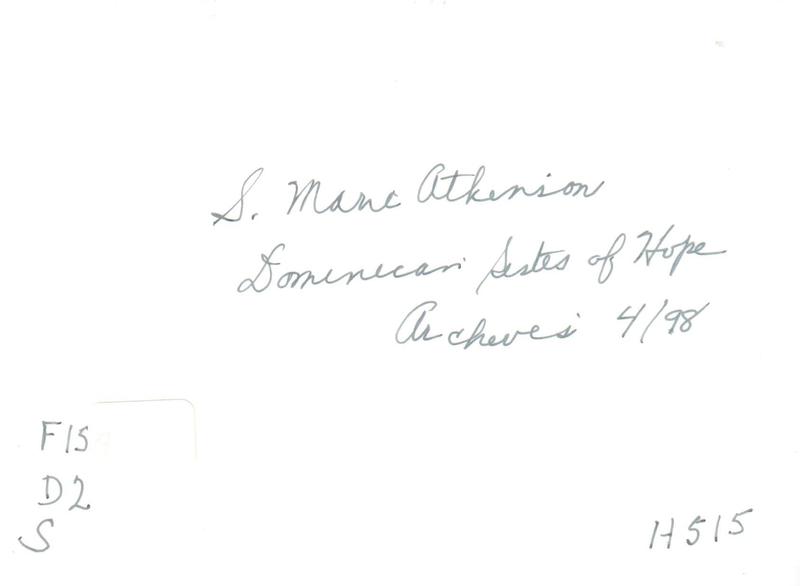 S. Marie Atkinson
Dominican Sisters of Hope
Archives 4/98
F15
D2
S
H515